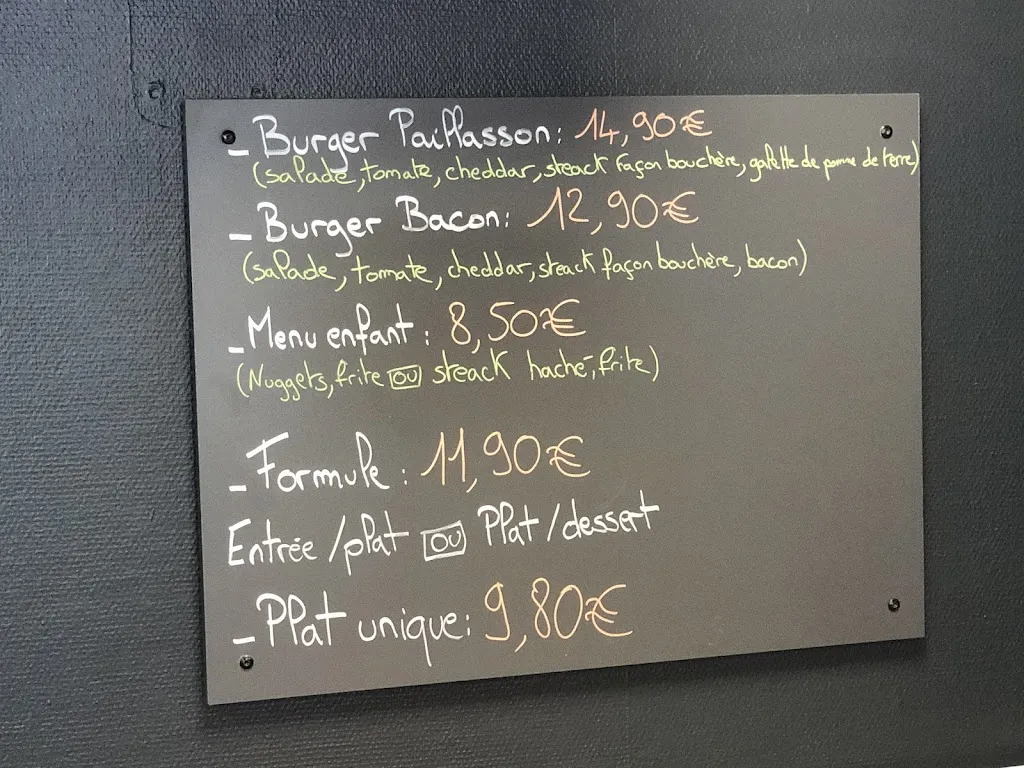 - Burger Paillasson: 14,90€
(salade, tomate, cheddar, steack façon bouchère, galette de pomme de terre)
- Burger Bacon: 12,90€
(salade, tomate, cheddar, steack façon bouchère, bacon)
- Menu enfant: 8,50€
(Nuggets, frite OU steack haché, frite)
- Formule: 11,90€
Entrée/plat OU Plat/dessert
- Plat unique: 9,80€